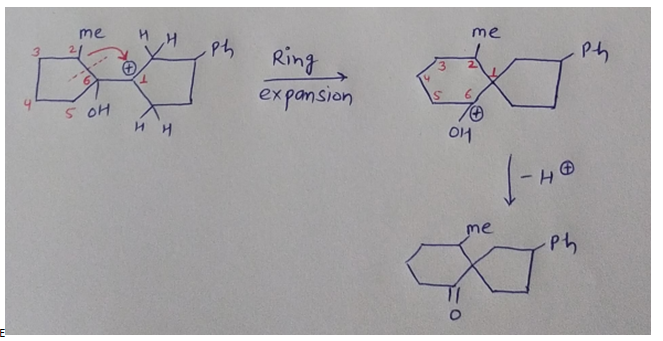 me
H H
3 2 Ph
⊕
6 1
4 5 OH
H H
Ring
expansion
me
Ph
3 2 1
4
5 6
⊕
OH
- H ⊕
me
Ph
O
E